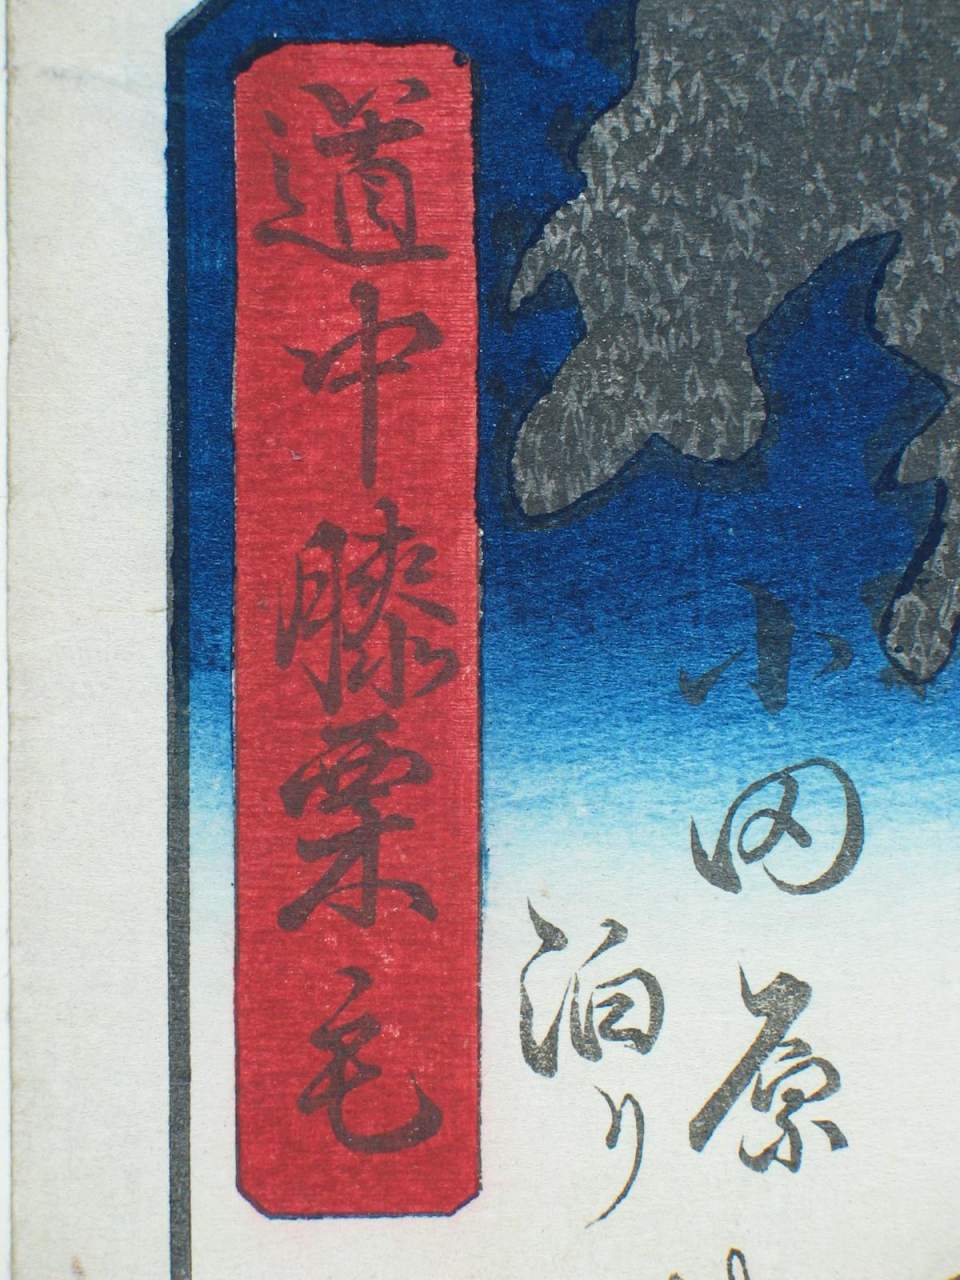 小田原
泊り
道中膝栗毛